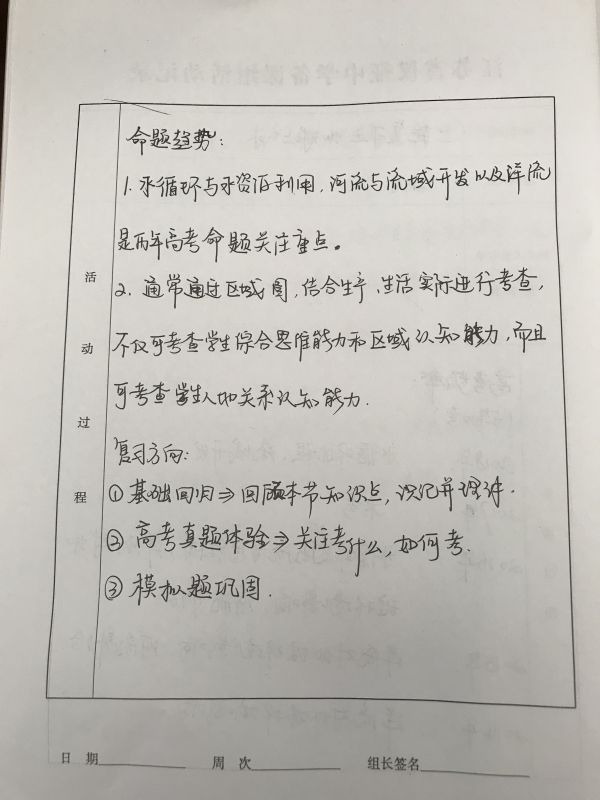 命题趋势:
1. 水循环与水资源利用,河流与流域开发以及洋流
是历年高考命题关注重点。
2. 通常通过区域图,结合生产、生活实际进行考查,
不仅可考查学生综合思维能力和区域认知能力,而且
可考查学生人地关系认知能力.
复习方向:
① 基础回归⇒回顾本节知识点,识记并理解.
② 高考真题体验⇒关注考什么,如何考.
③ 模拟题巩固.
活动过程
日 期 周 次 组长签名